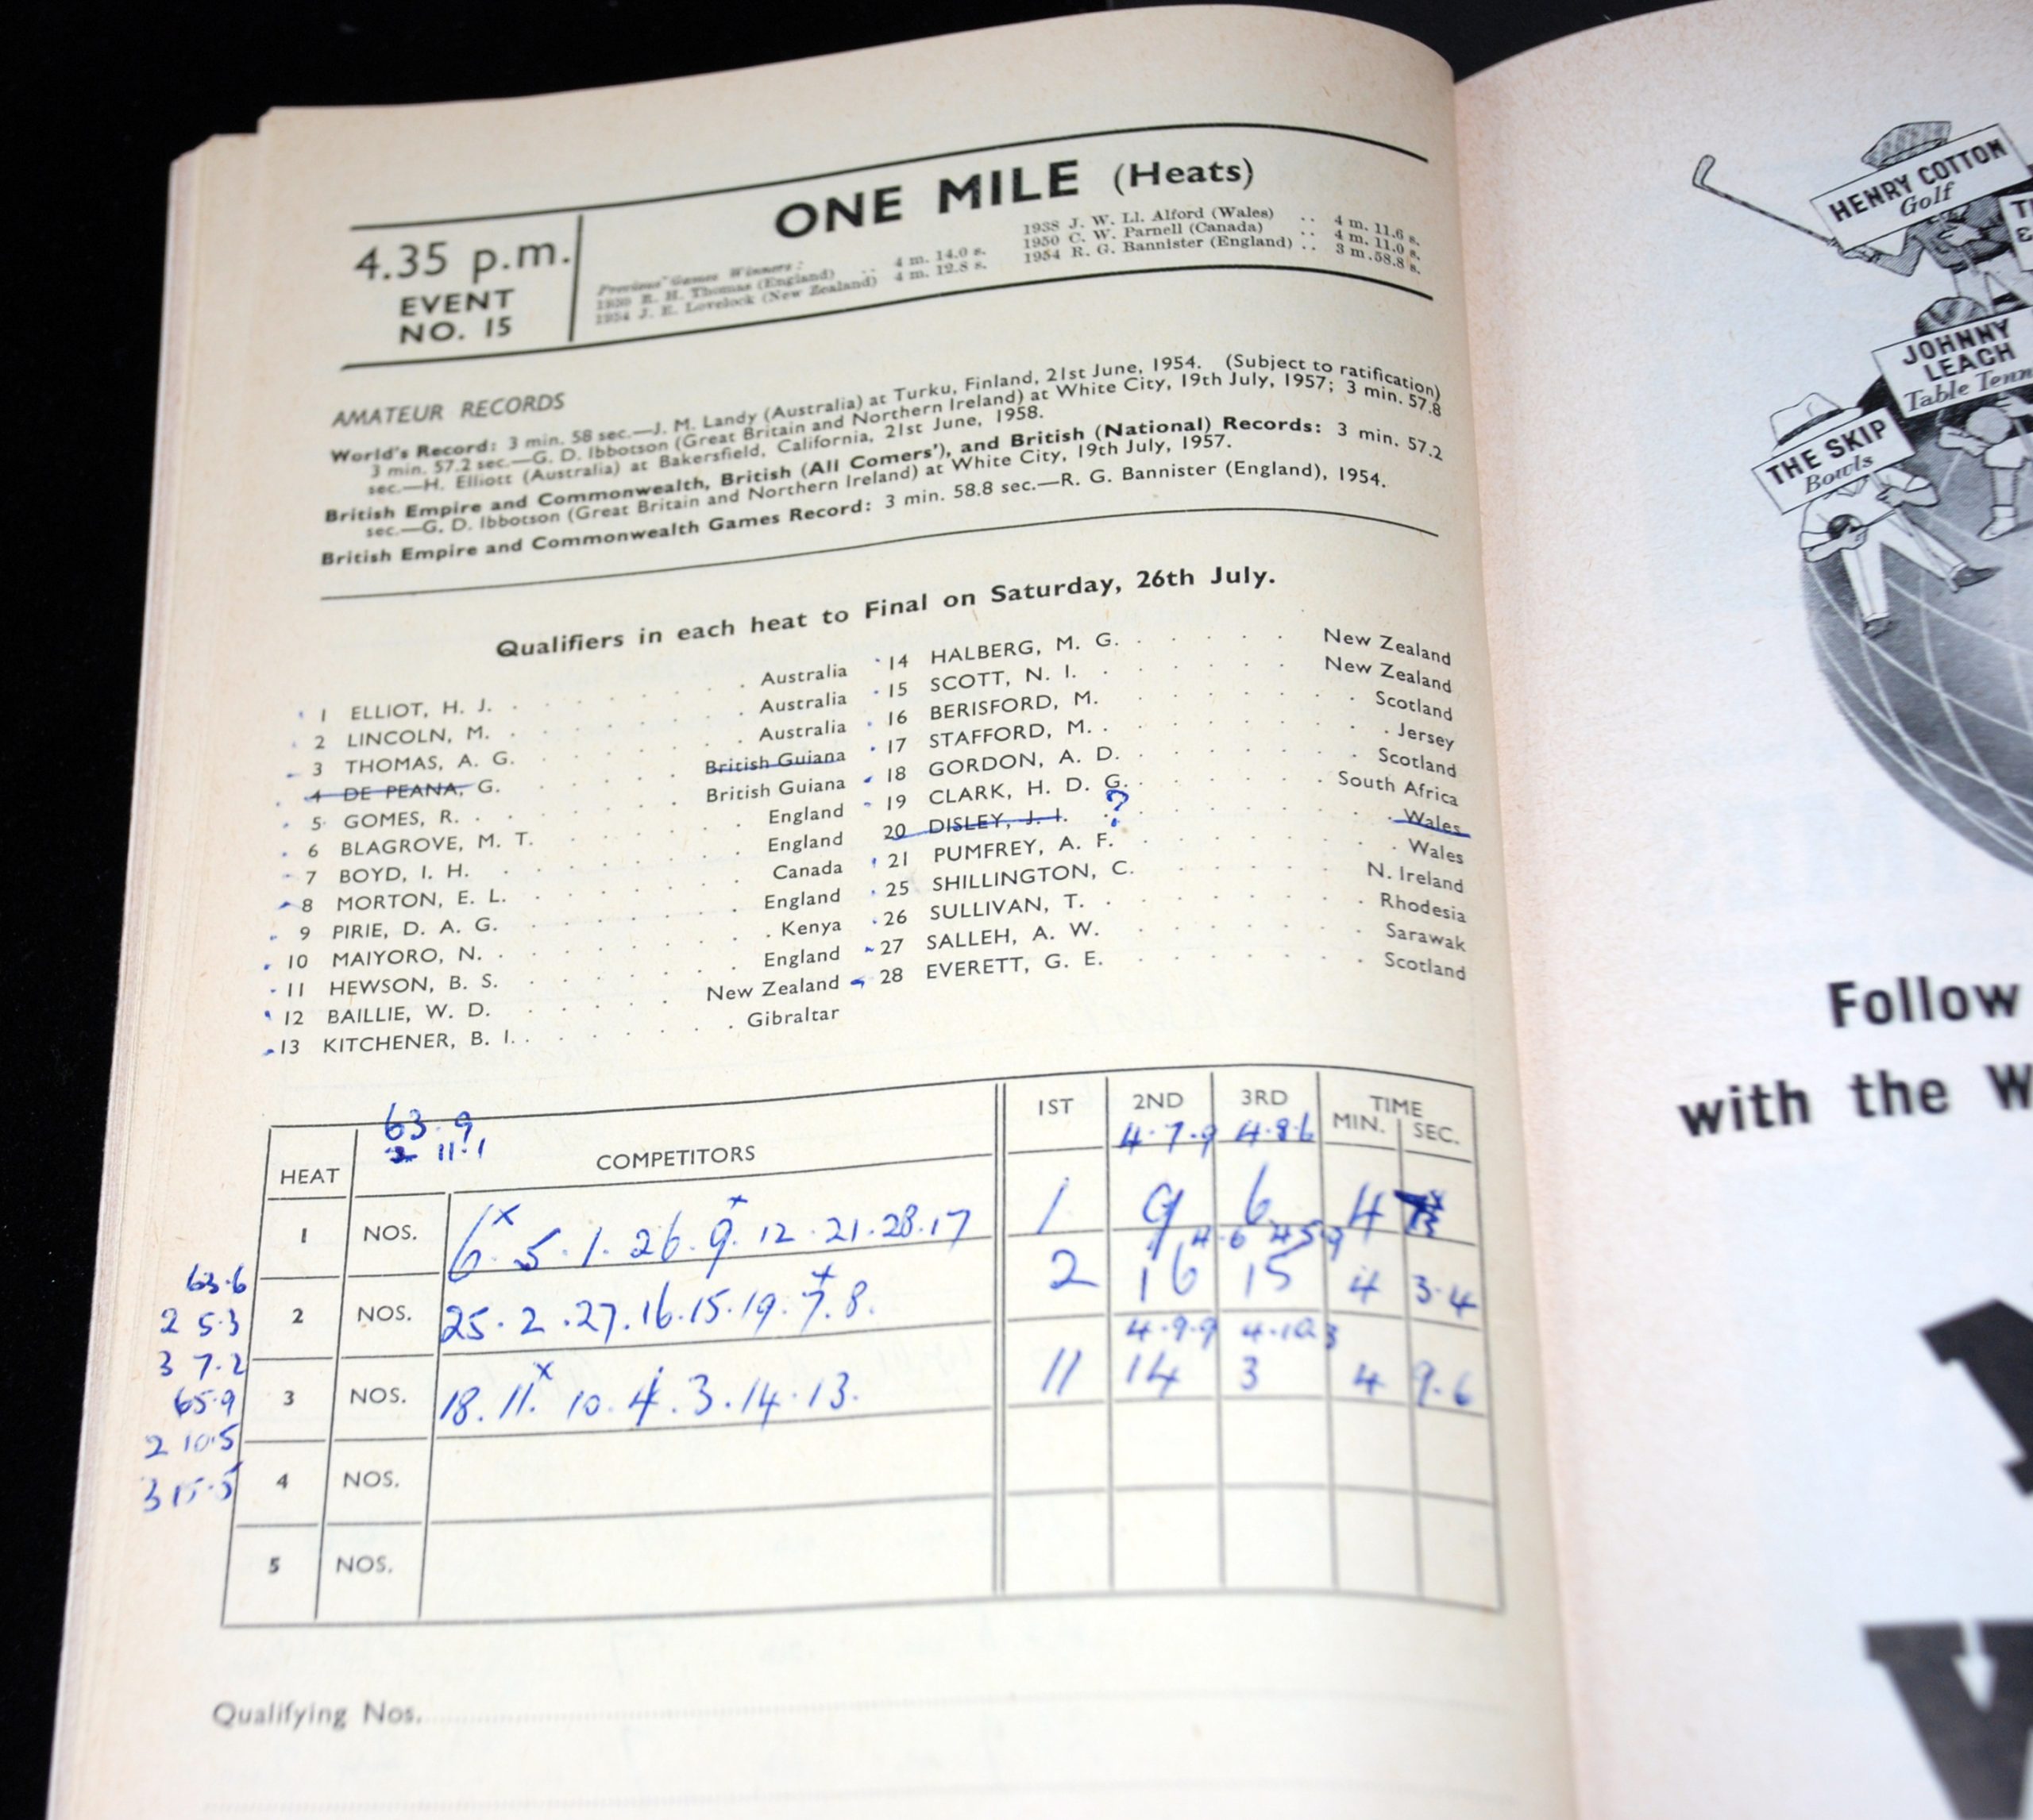 ONE MILE (Heats)
4.35 p.m.
EVENT
NO. 15
Previous Games Winners:
1930 R. H. Thomas (England) .. 4 m. 14.0 s.
1934 J. E. Lovelock (New Zealand) 4 m. 12.8 s.
1938 J. W. Ll. Alford (Wales) .. 4 m. 11.6 s.
1950 C. W. Parnell (Canada) .. 4 m. 11.0 s.
1954 R. G. Bannister (England) .. 3 m. 58.8 s.
AMATEUR RECORDS
World's Record: 3 min. 58 sec.—J. M. Landy (Australia) at Turku, Finland, 21st June, 1954. (Subject to ratification)
3 min. 57.2 sec.—G. D. Ibbotson (Great Britain and Northern Ireland) at White City, 19th July, 1957; 3 min. 57.8
sec.—H. Elliott (Australia) at Bakersfield, California, 21st June, 1958.
British Empire and Commonwealth, British (All Comers'), and British (National) Records: 3 min. 57.2
sec.—G. D. Ibbotson (Great Britain and Northern Ireland) at White City, 19th July, 1957.
British Empire and Commonwealth Games Record: 3 min. 58.8 sec.—R. G. Bannister (England), 1954.
Qualifiers in each heat to Final on Saturday, 26th July.
1 ELLIOT, H. J. . . . . . . Australia
2 LINCOLN, M. . . . . . . Australia
3 THOMAS, A. G. . . . . . Australia
4 DE PEANA, G. . . . . . British Guiana
5 GOMES, R. . . . . . . British Guiana
6 BLAGROVE, M. T. . . . . . England
7 BOYD, I. H. . . . . . . England
8 MORTON, E. L. . . . . . Canada
9 PIRIE, D. A. G. . . . . . England
10 MAIYORO, N. . . . . . . Kenya
11 HEWSON, B. S. . . . . . England
12 BAILLIE, W. D. . . . . . New Zealand
13 KITCHENER, B. I. . . . . . Gibraltar
14 HALBERG, M. G. . . . . . New Zealand
15 SCOTT, N. I. . . . . . New Zealand
16 BERISFORD, M. . . . . . Scotland
17 STAFFORD, M. . . . . . Jersey
18 GORDON, A. D. . . . . . Scotland
19 CLARK, H. D. G. . . . . . South Africa
20 DISLEY, J. I. ? . . . . . Wales
21 PUMFREY, A. F. . . . . . Wales
25 SHILLINGTON, C. . . . . . N. Ireland
26 SULLIVAN, T. . . . . . Rhodesia
27 SALLEH, A. W. . . . . . Sarawak
28 EVERETT, G. E. . . . . . Scotland
63.9
2 11.1
HEAT COMPETITORS 1ST 2ND 3RD TIME
MIN. SEC.
4.7.9 4.8.6
1 NOS. 6x.5.1.26.9x.12.21.28.17 1 9 6 4
4.6 4 5.9
2 NOS. 25.2.27.16.15.19.7x.8. 2 16 15 4 3.4
4.9.9 4.10.3
3 NOS. 18.11x.10.4.3.14.13. 11 14 3 4 9.6
4 NOS.
5 NOS.
63.6
2 5.3
3 7.2
65.9
2 10.5
3 15.5
Qualifying Nos.
HENRY COTTON
Golf
JOHNNY
LEACH
Table Tenn
THE SKIP
Bowls
Follow
with the W